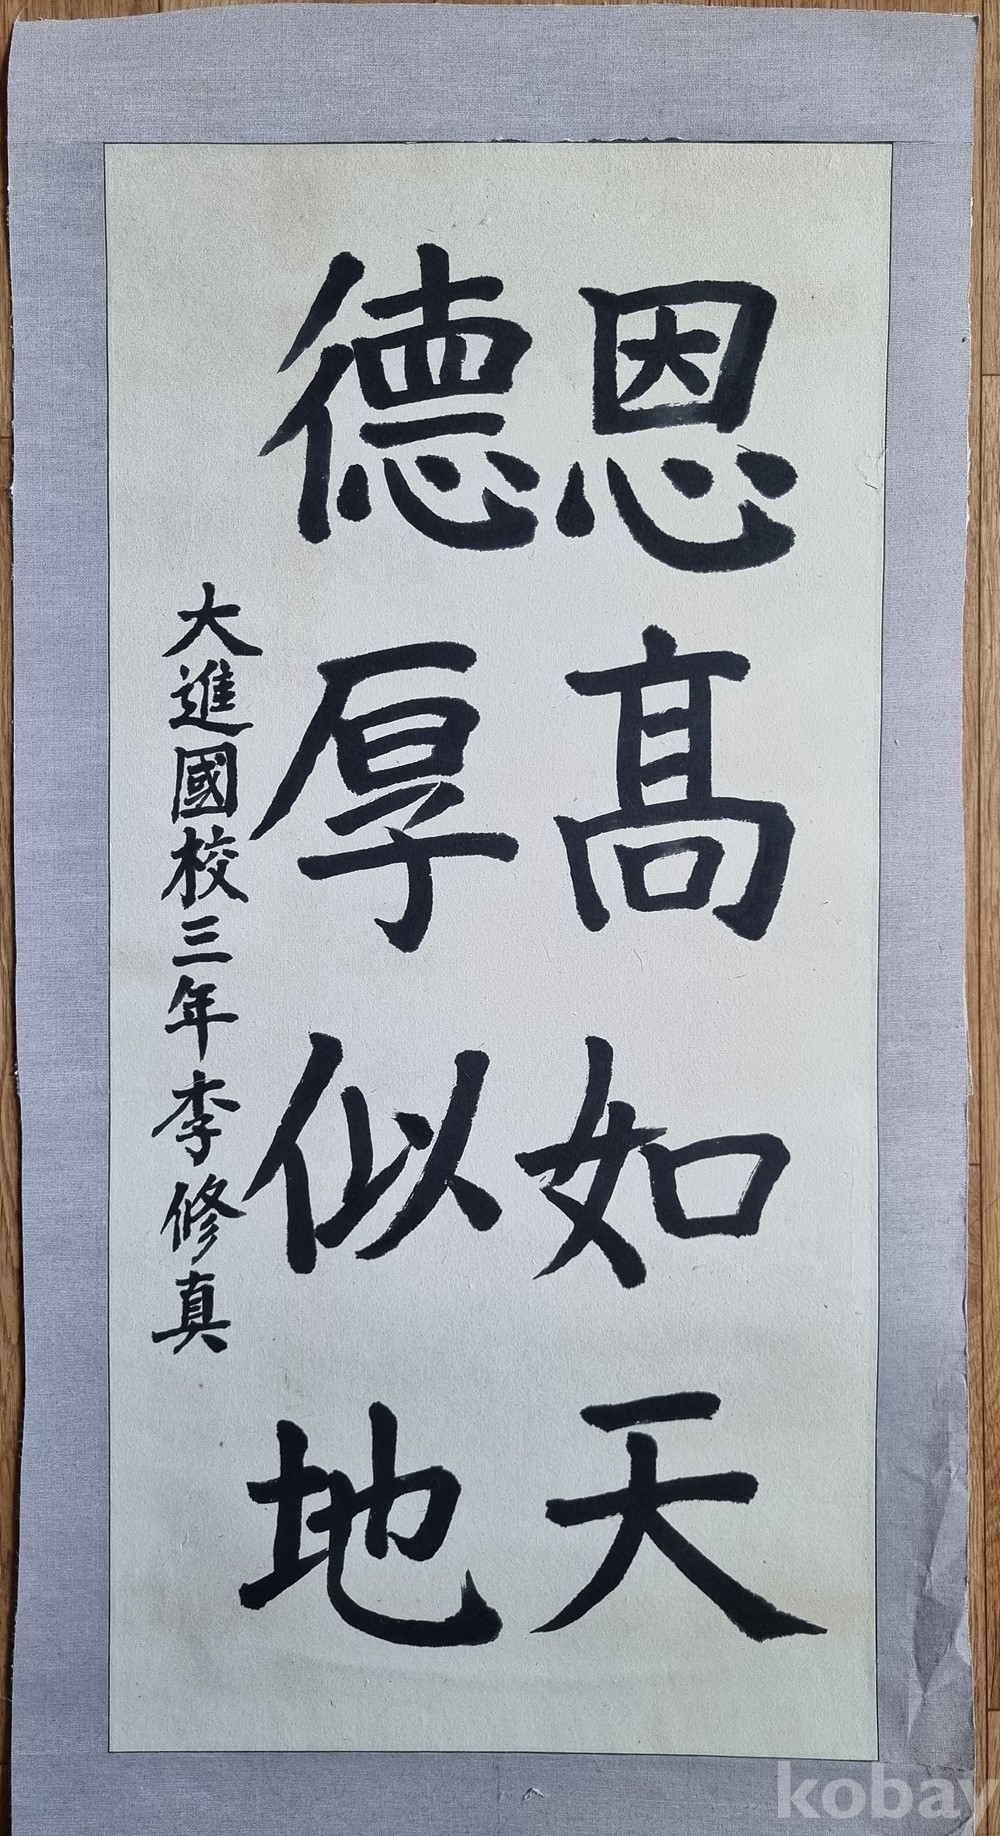 恩髙如天
德厚似地
大進國校三年李修真
kobay